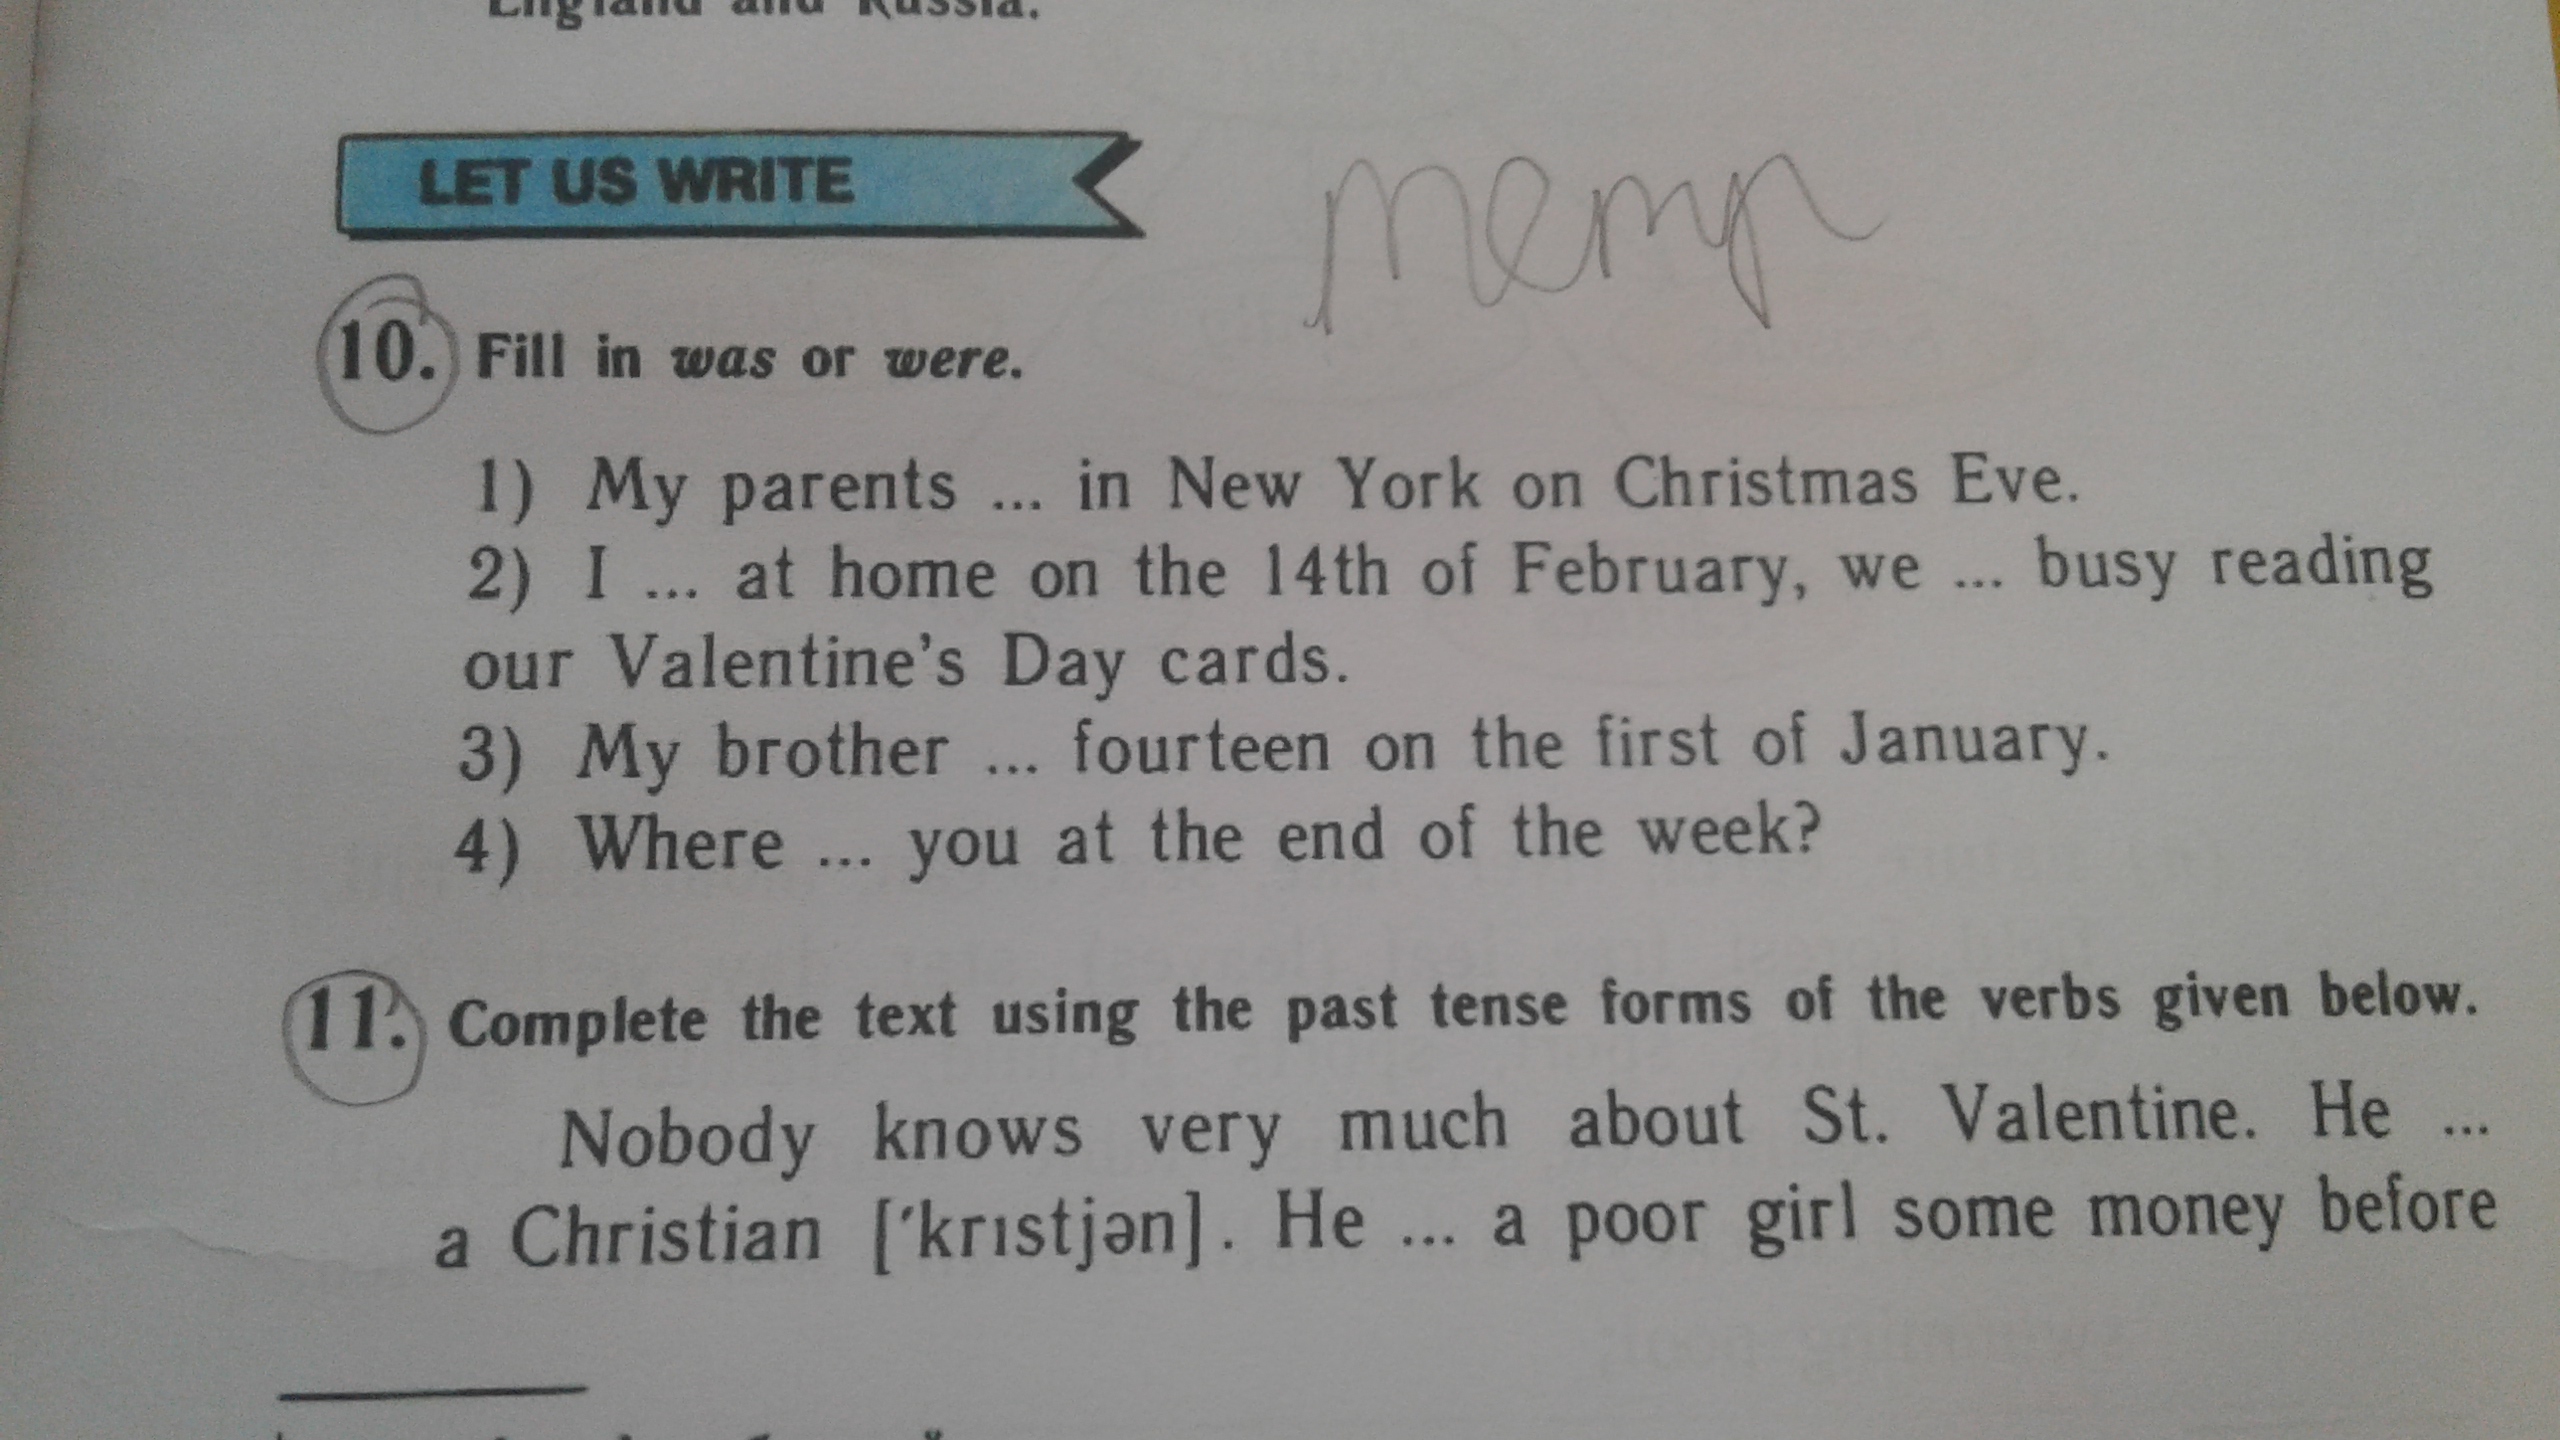 England and Russia.
LET US WRITE
10. Fill in was or were.
1) My parents ... in New York on Christmas Eve.
2) I ... at home on the 14th of February, we ... busy reading
our Valentine's Day cards.
3) My brother ... fourteen on the first of January.
4) Where ... you at the end of the week?
11. Complete the text using the past tense forms of the verbs given below.
Nobody knows very much about St. Valentine. He ...
a Christian [ˈkrıstjən]. He ... a poor girl some money before